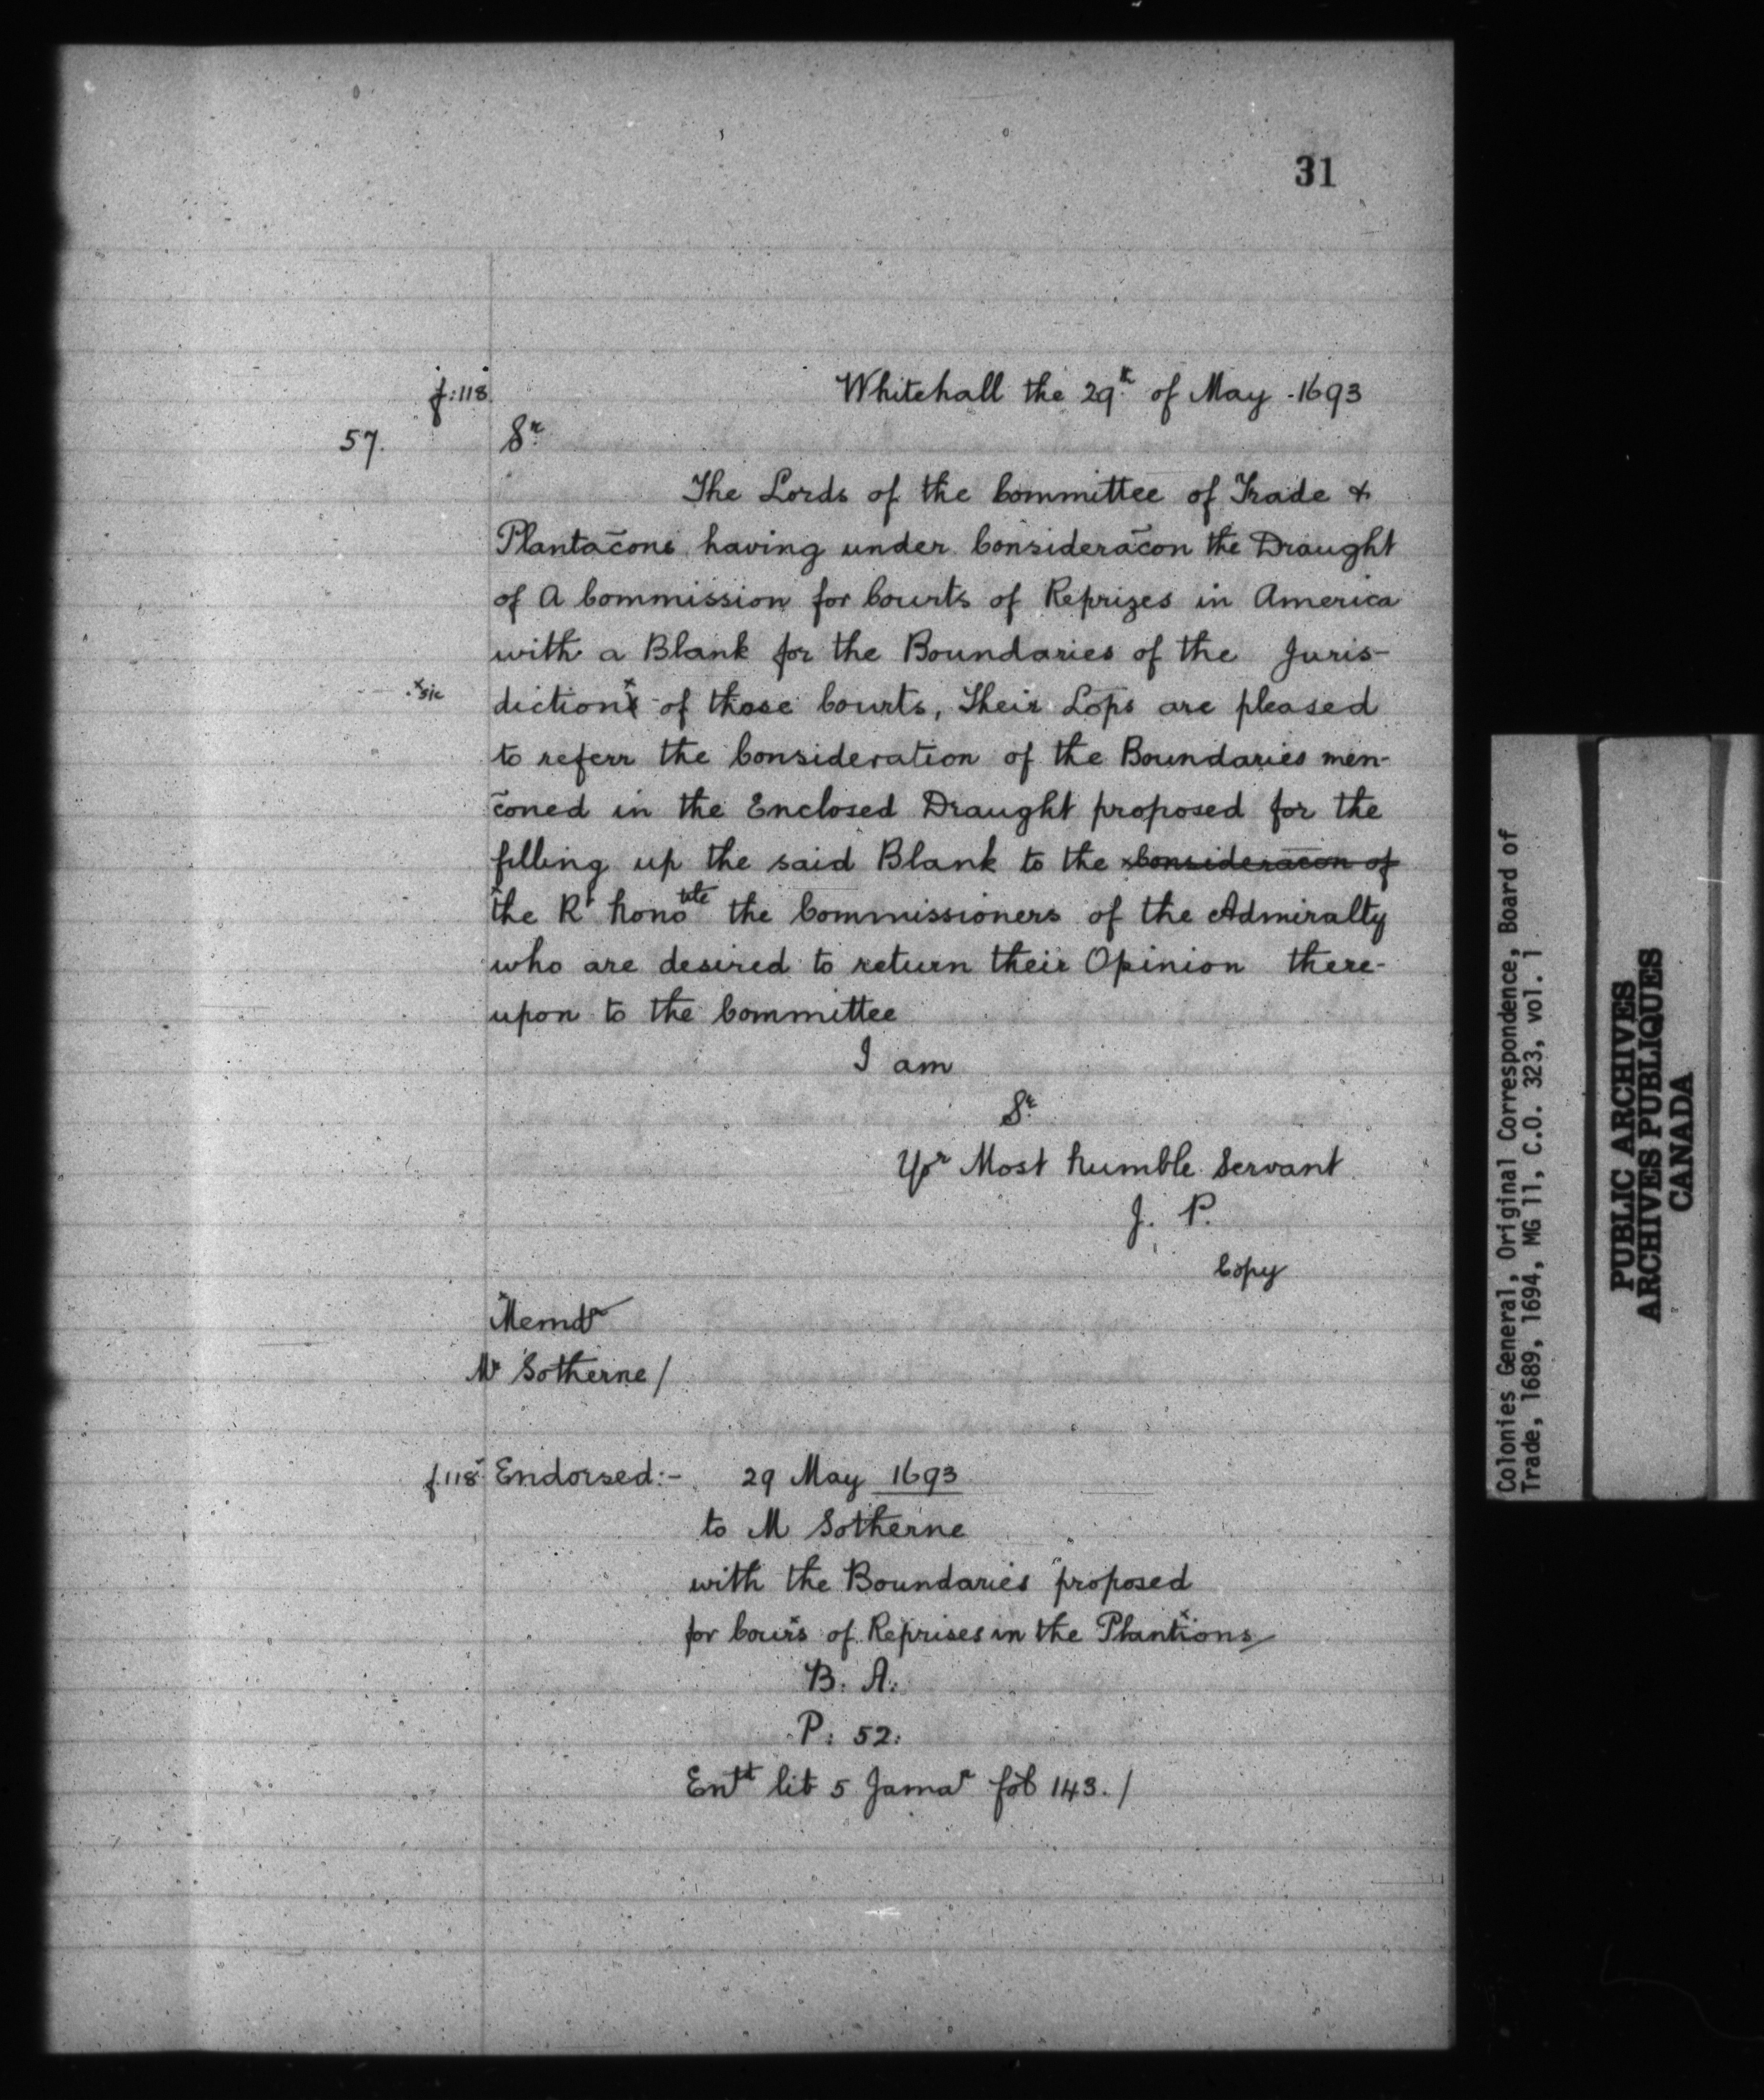 31
f: 118
Whitehall the 29th of May 1693
57.
Sr
The Lords of the Committee of Trade &
Plantac̄ons having under Considerac̄on the Draught
of A Commission for Courts of Reprizes in America
with a Blank for the Boundaries of the Juris-
×sic
dictions× of those Courts, Their Lops are pleased
to referr the Consideration of the Boundaries men-
c̄oned in the Enclosed Draught proposed for the
filling up the said Blank to the Consideracon of
the Rt honoble the Commissioners of the Admiralty
who are desired to return their Opinion there-
upon to the Committee
I am
Sr
Yor Most humble Servant
J. P.
Copy
Memdr
Mr Sotherne /
f. 118v Endorsed:- 29 May 1693
to M Sotherne
with the Boundaries proposed
for Cours of Reprises in the Plantions
B. A.
P: 52:
Entd lib 5 Jamar fol 143. /
Colonies General, Original Correspondence, Board of
Trade, 1689, 1694, MG 11, C.O. 323, vol. 1
PUBLIC ARCHIVES
ARCHIVES PUBLIQUES
CANADA